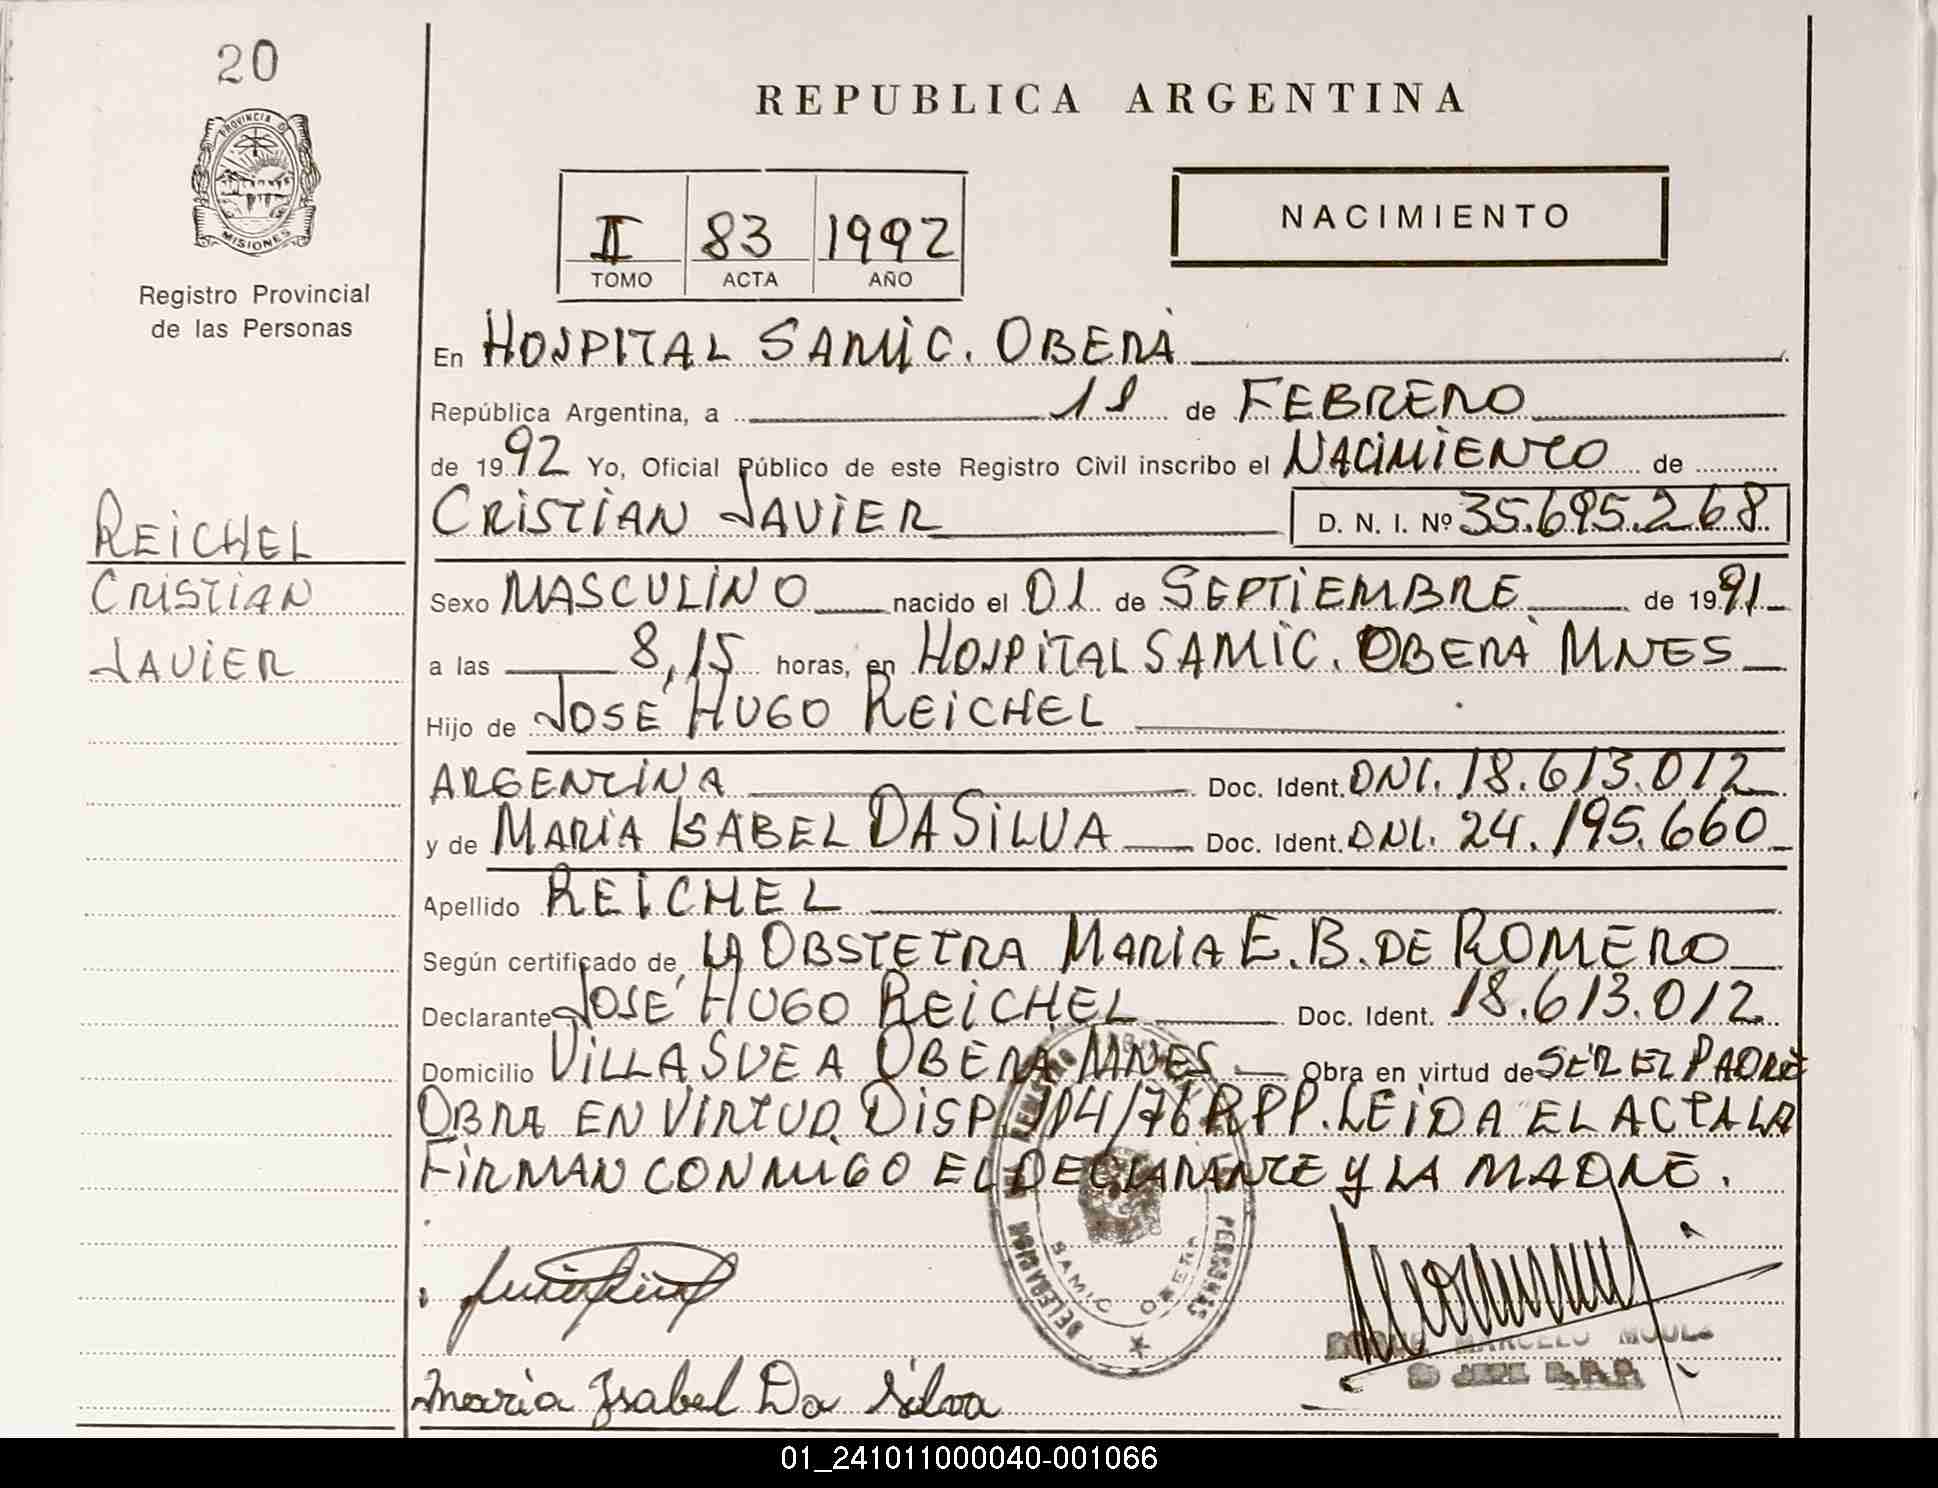 20
REPUBLICA ARGENTINA
PROVINCIA DE
MISIONES
Registro Provincial
de las Personas
II 83 1992
TOMO ACTA AÑO
NACIMIENTO
En HOSPITAL SAMIC. OBERÁ
República Argentina, a 11 de FEBRERO
de 1992 Yo, Oficial Público de este Registro Civil inscribo el NACIMIENTO de
CRISTIAN JAVIER D. N. I. Nº 35.695.268
REICHEL
CRISTIAN
JAVIER
Sexo MASCULINO nacido el 01 de SEPTIEMBRE de 1991
a las 8,15 horas, en HOSPITAL SAMIC. OBERÁ MNES
Hijo de JOSÉ HUGO REICHEL
ARGENTINA Doc. Ident. DNI. 18.613.012
y de MARIA ISABEL DA SILVA Doc. Ident. DNI. 24.195.660
Apellido REICHEL
Según certificado de LA OBSTETRA MARIA E. B. DE ROMERO
Declarante JOSÉ HUGO REICHEL Doc. Ident. 18.613.012
Domicilio VILLA SVEA OBERA MNES Obra en virtud de SER EL PADRE
OBRA EN VIRTUD DISP. 114/76 RPP. LEIDA EL ACTA LA
FIRMAN CONMIGO EL DECLARANTE Y LA MADRE.
DELEGACION
PERSONAS
SAMIC OBERA
MARCELO
JEFE R.P.P.
Maria Isabel Da Silva
01_241011000040-001066